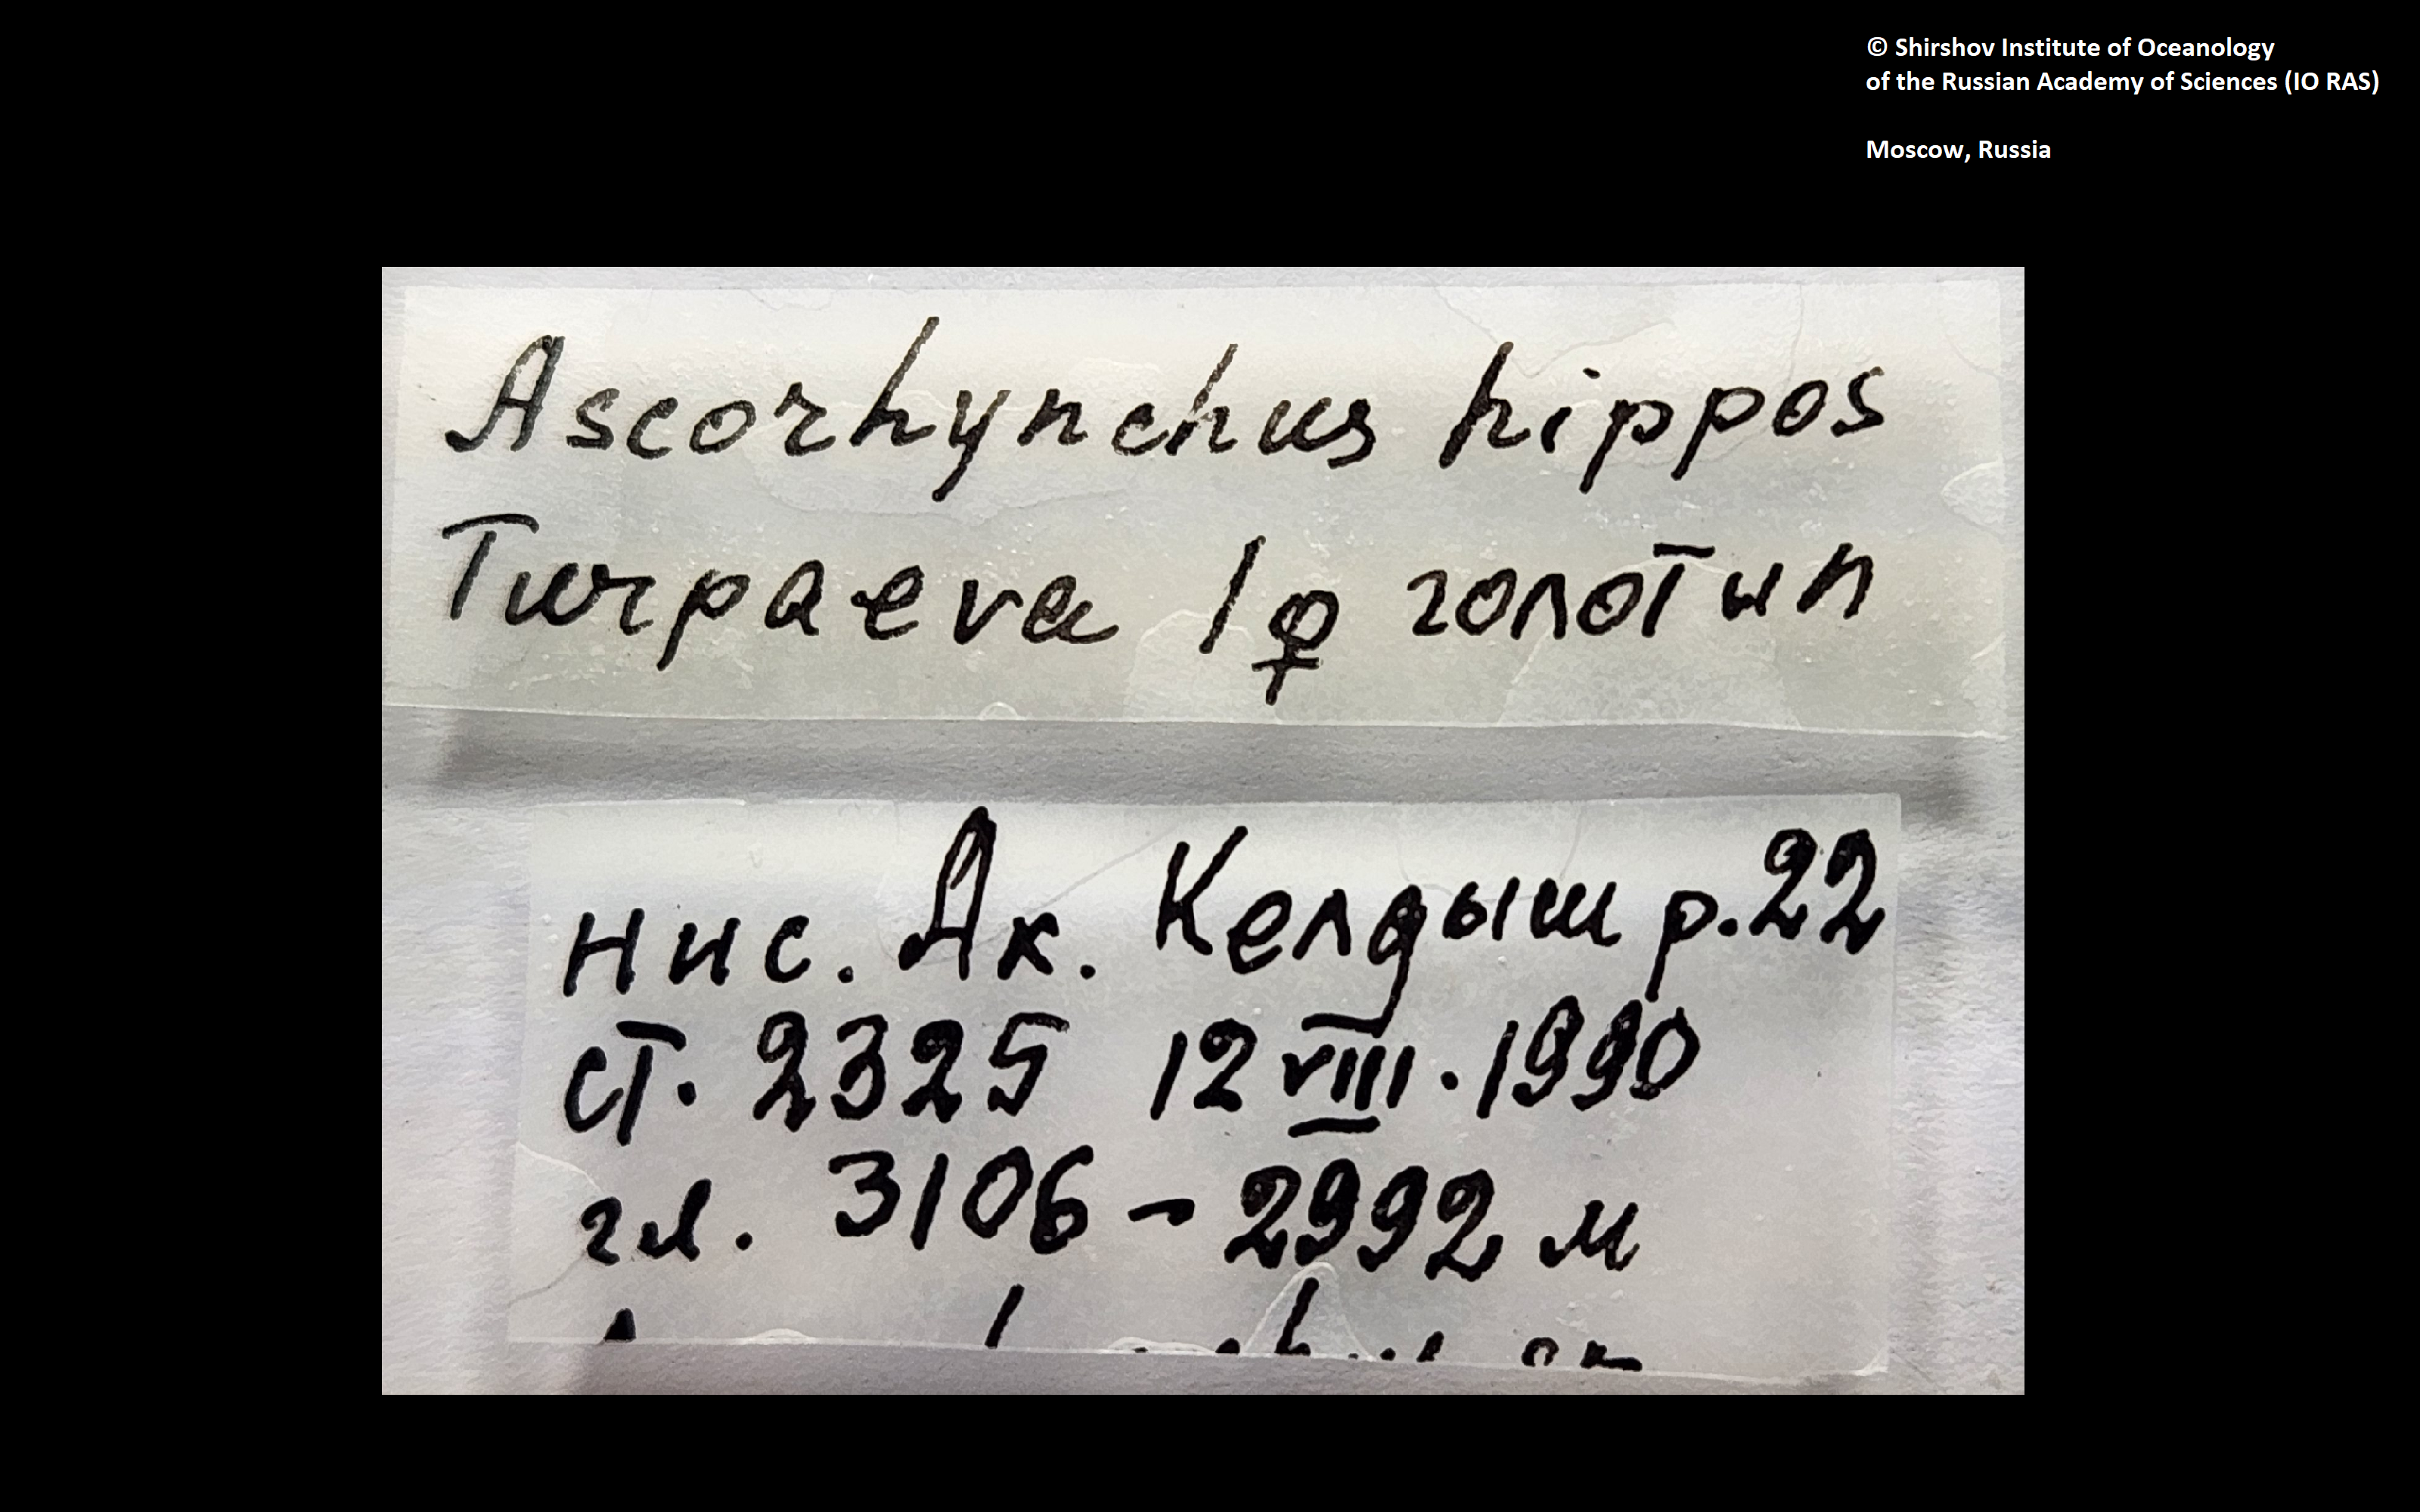 © Shirshov Institute of Oceanology
of the Russian Academy of Sciences (IO RAS)
Moscow, Russia
Ascorhynchus hippos
Turpaeva 1♀ голотип
нис. Ак. Келдыш р.22
ст. 2325 12 VIII.1990
гл. 3106 - 2992 м